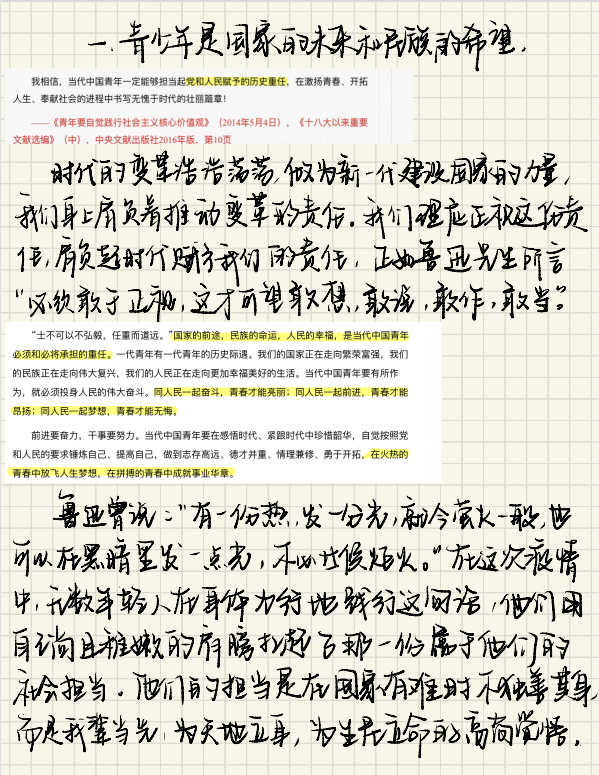 一.青少年是国家的未来和民族的希望.
我相信，当代中国青年一定能够担当起党和人民赋予的历史重任，在激扬青春、开拓
人生、奉献社会的进程中书写无愧于时代的壮丽篇章！
——《青年要自觉践行社会主义核心价值观》（2014年5月4日），《十八大以来重要
文献选编》（中），中央文献出版社2016年版，第10页
时代的变革浩浩荡荡,做为新一代建设国家的力量,
我们身上肩负着推动变革的责任.我们理应正视这份责
任,肩负起时代赋予我们的责任,正如鲁迅先生所言
“必须敢于正视,这才可望敢想,敢说,敢作,敢当”.
“士不可以不弘毅，任重而道远。”国家的前途，民族的命运，人民的幸福，是当代中国青年
必须和必将承担的重任。一代青年有一代青年的历史际遇。我们的国家正在走向繁荣富强，我们
的民族正在走向伟大复兴，我们的人民正在走向更加幸福美好的生活。当代中国青年要有所作
为，就必须投身人民的伟大奋斗。同人民一起奋斗，青春才能亮丽；同人民一起前进，青春才能
昂扬；同人民一起梦想，青春才能无悔。
前进要奋力，干事要努力。当代中国青年要在感悟时代、紧跟时代中珍惜韶华，自觉按照党
和人民的要求锤炼自己、提高自己，做到志存高远、德才并重、情理兼修、勇于开拓。在火热的
青春中放飞人生梦想，在拼搏的青春中成就事业华章。
鲁迅曾说:“有一份热,发一分光,就令萤火一般,也
可以在黑暗里发一点光,不必等候炬火.”在这次疫情
中,无数年轻人在身体力行地践行这句话,他们用
自己尚且稚嫩的肩膀扛起了那一份属于他们的
社会担当.他们的担当是在国家有难时不独善其身,
而是我辈当先,为天地立耳,为生民立命的高尚觉悟.